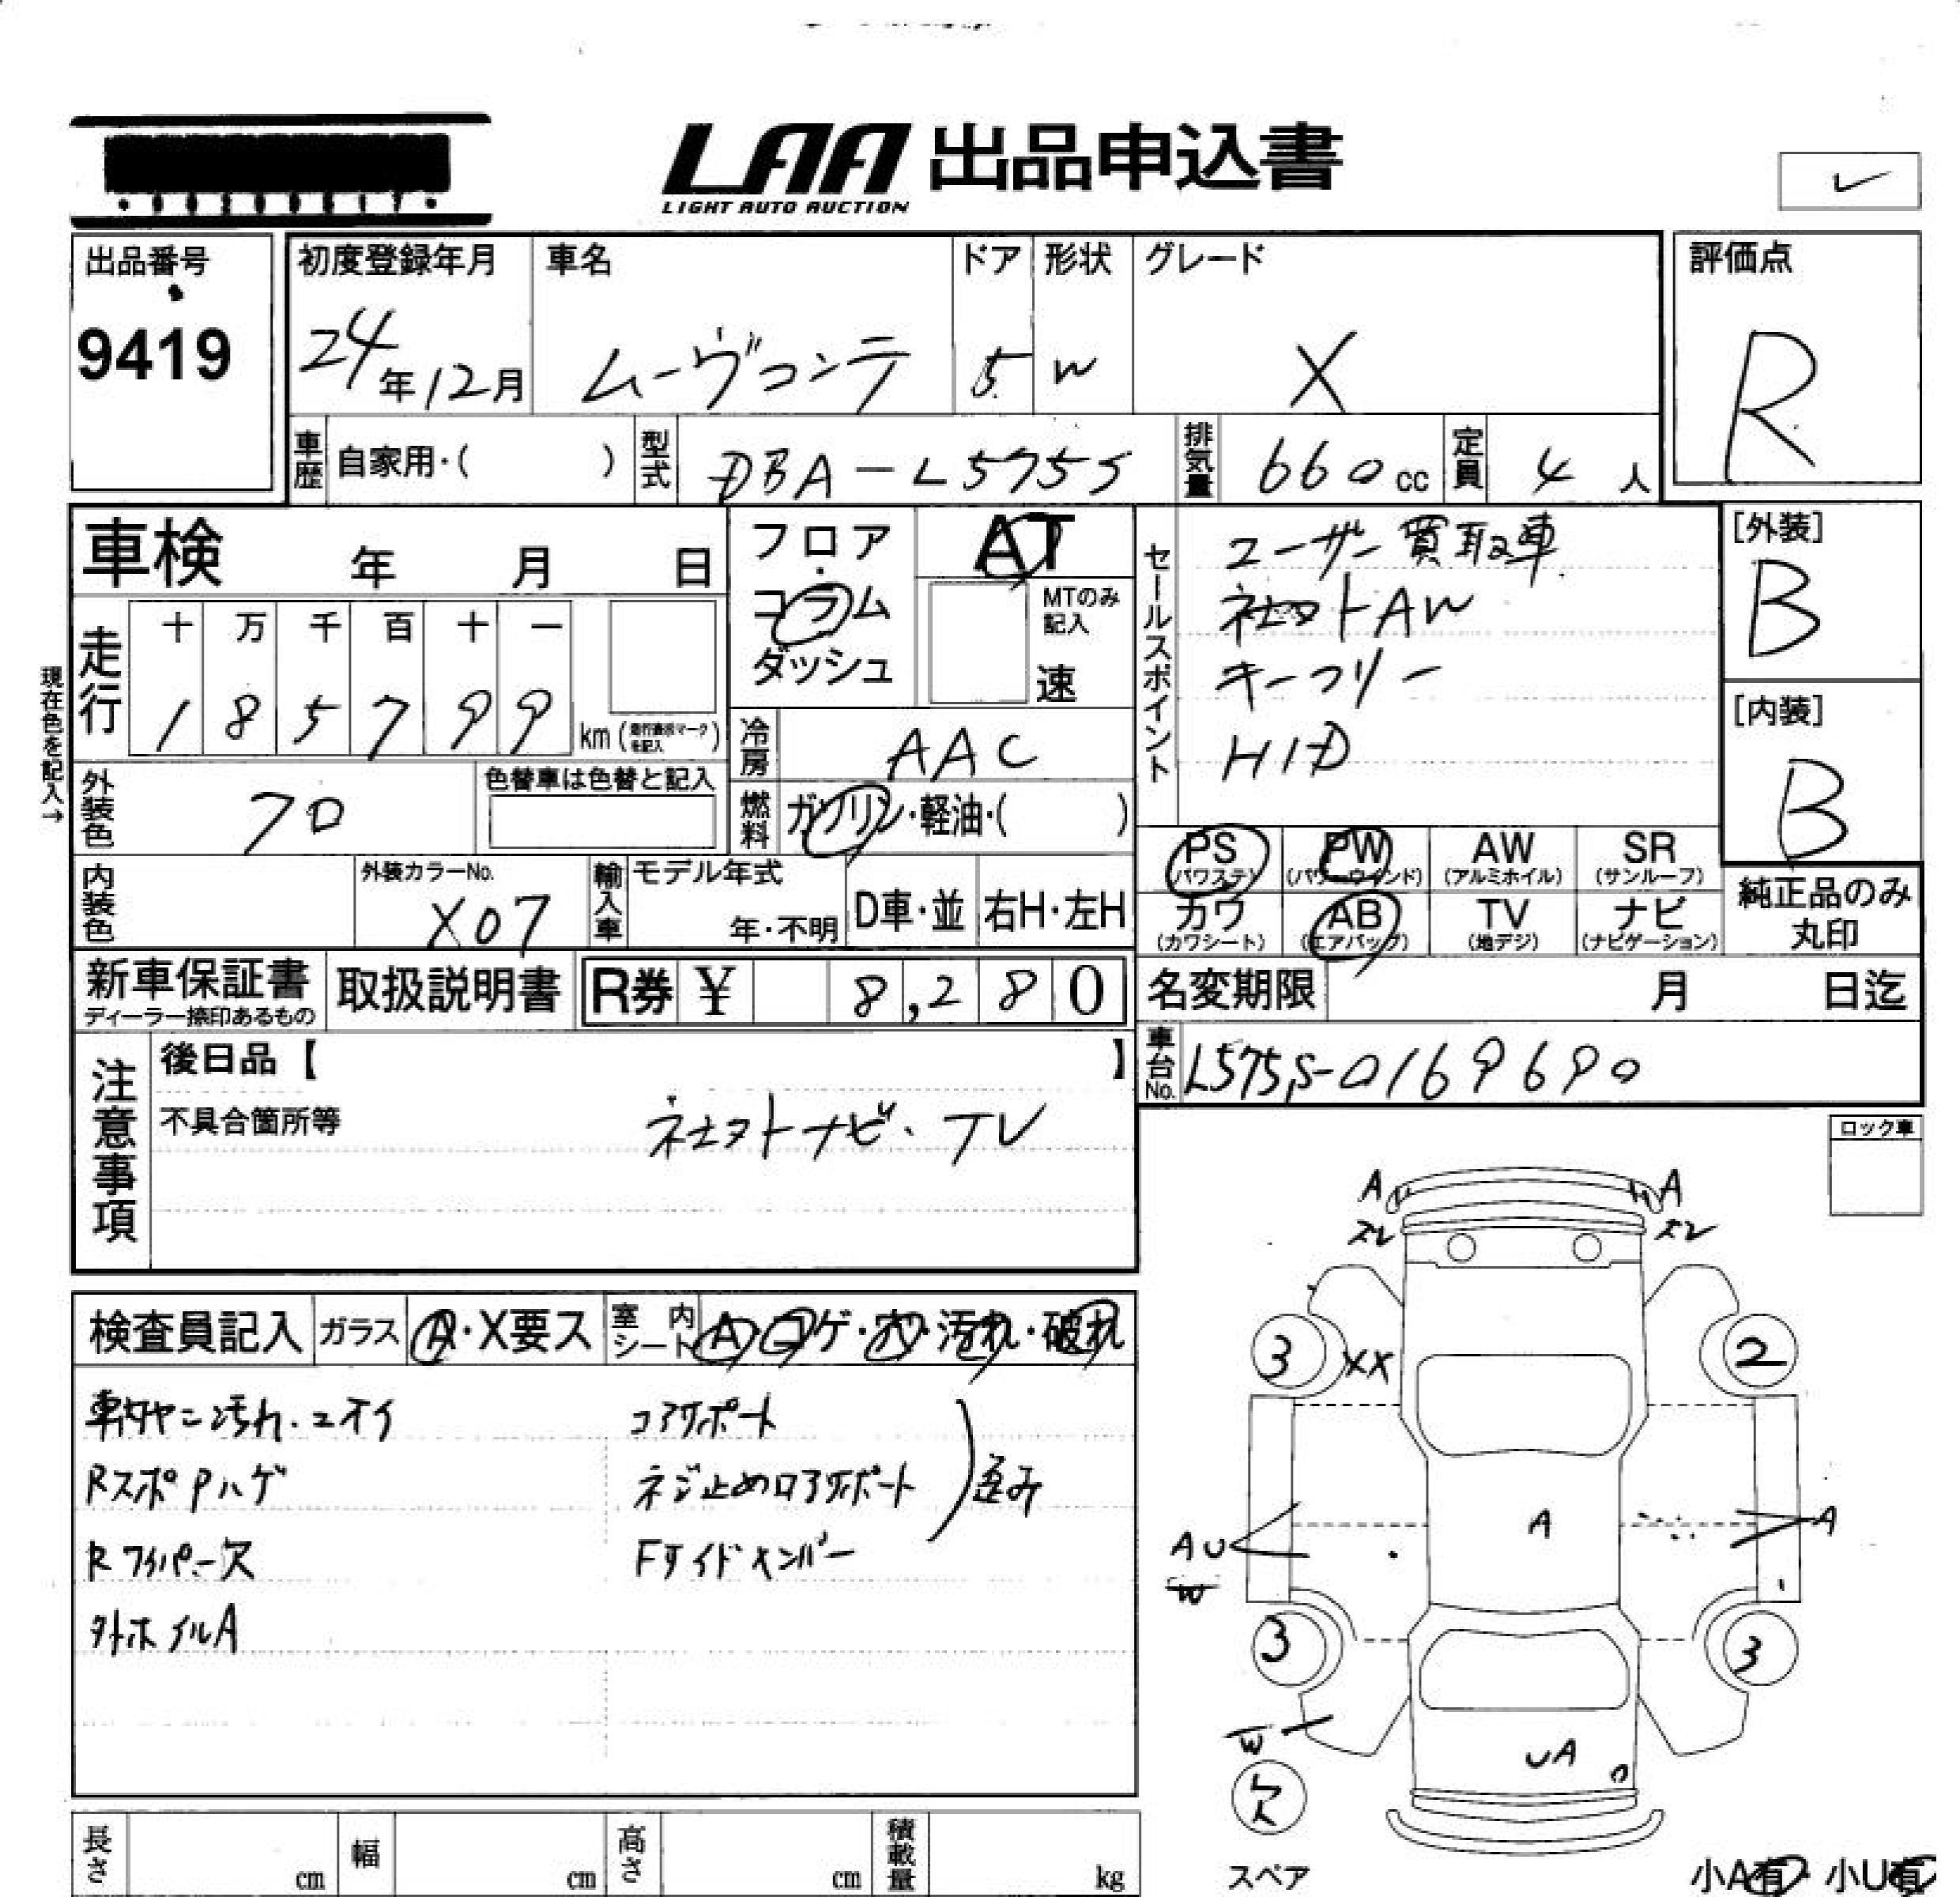 LAA 出品申込書
LIGHT AUTO AUCTION
出品番号
9419
初度登録年月
24年12月
車名
ムーヴコンテ
ドア
5
形状
W
グレード
X
評価点
R
車歴 自家用・( )
型式 DBA-L575S
排気量 660cc
定員 4人
車検 年 月 日
フロア
コラム
ダッシュ
AT
MTのみ記入
速
セールスポイント
ユーザー買取車
社外AW
キーフリー
HID
[外装]
B
[内装]
B
現在色を記入→
走行
十 万 千 百 十 一
1 8 5 7 9 9
km
冷房 AAC
外装色
クロ
色替車は色替と記入
燃料 ガソリン・軽油・( )
PS (パワステ)
PW (パワーウインド)
AW (アルミホイル)
SR (サンルーフ)
カワ (カワシート)
AB (エアバッグ)
TV (地デジ)
ナビ (ナビゲーション)
純正品のみ丸印
内装色
外装カラーNo.
X07
輸入車
モデル年式
年・不明
D車・並
右H・左H
新車保証書
ディーラー捺印あるもの
取扱説明書
R券 ¥ 8,280
名変期限 月 日迄
車台No. L575S-0169690
注意事項
後日品【 】
不具合箇所等
社外ナビ・TV
ロック車
検査員記入
ガラス A・X要ス
室内シート A・コゲ・穴・汚れ・破れ
車内ヤニ汚れ・ニオイ
RスポPハゲ
Rワイパー欠
外ホイルA
コアサポート
ネジ止めロアサポート
Fサイドメンバー
歪み
A A
ズレ ズレ
3 XX 2
A
AU
W
A
3 3
W
UA
欠
スペア
小A有・小U有
長さ cm
幅 cm
高さ cm
積載量 kg